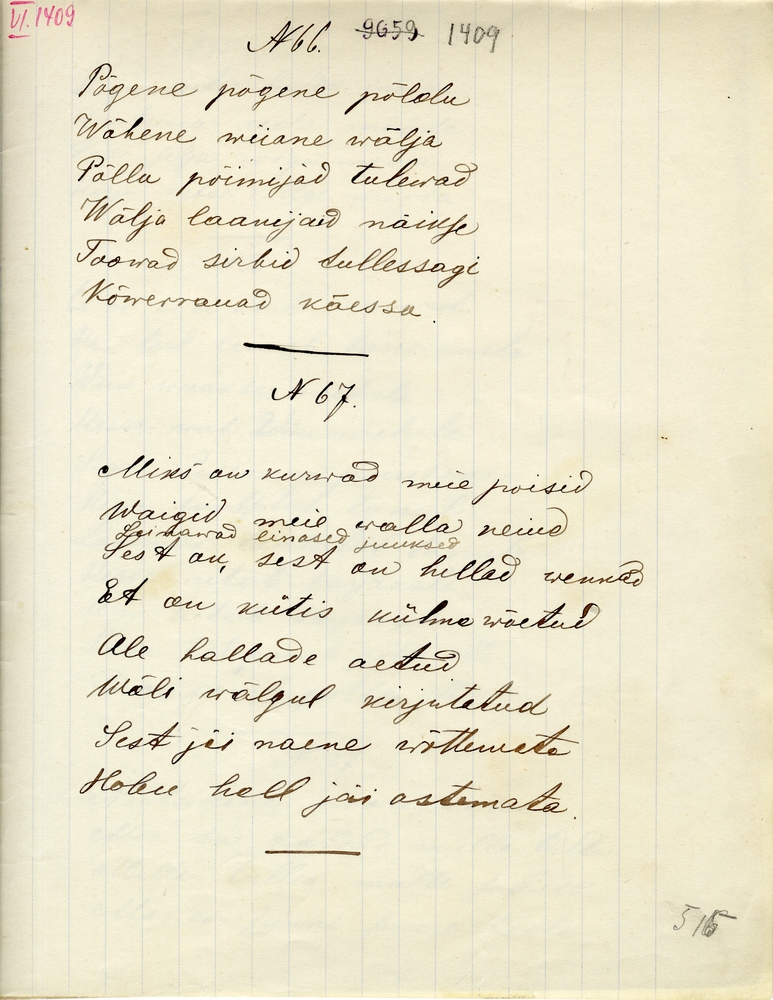 VI. 1409
N 66. 9659 1409
Põgene põgene põldu
Wähene weiane wälja
Põllu põimijad tulewad
Wälja laanijaid näikse
Toowad sirbid tullessagi
Kõwerrauad käessa.
N 67.
Miks on kurwad meie poisid
Waigid meie walla neiud
Leinawad einased juuksed
Sest on, sest on hellad wennad
Et on kütis külma wõetud
Ale hallade aetud
Wäli wälgul kirjutetud
Sest jäi naene wõttemata
Hobu hall jäi ostemata.